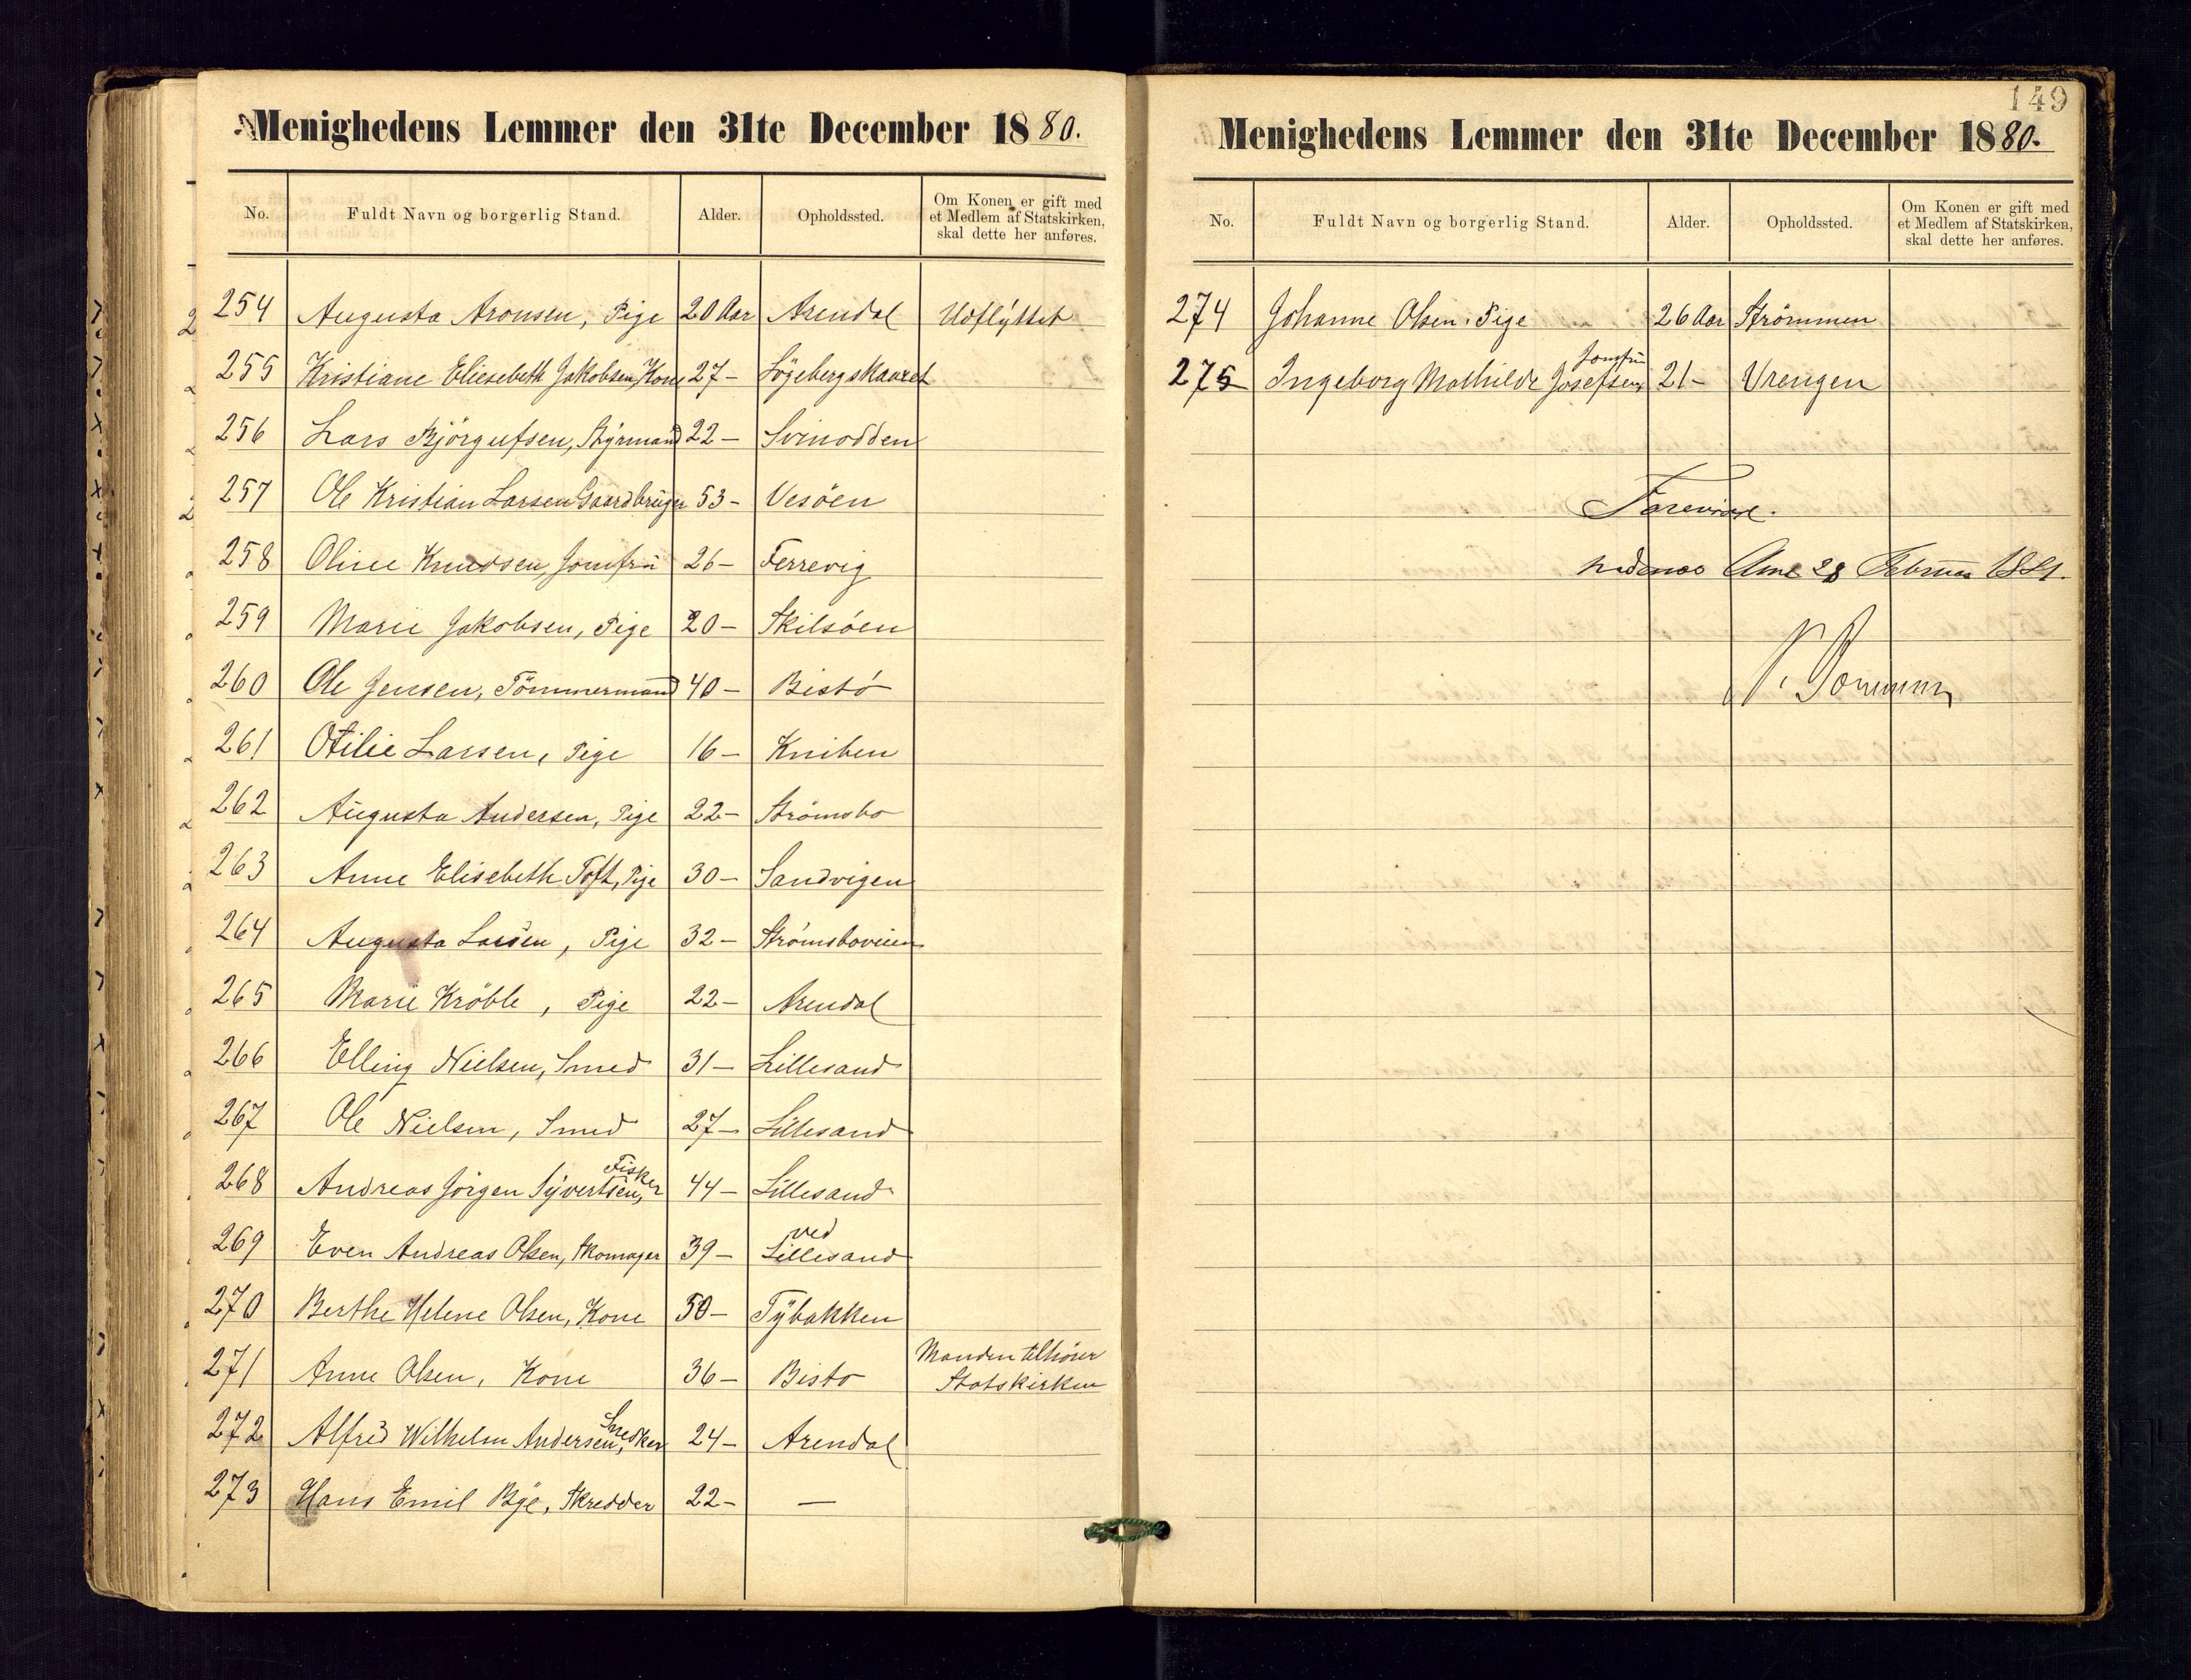 Menighedens Lemmer den 31te December 1880.
No. Fuldt Navn og borgerlig Stand. Alder. Opholdssted. Om Konen er gift med et Medlem af Statskirken, skal dette her anføres.
254 Augusta Aronsen, Pige 20 Aar Arendal Udflÿttet
255 Kristiane Eliesebeth Jakobsen, Kone 27 - Lögebergskaaret
256 Lars Bjórgufsen, Stÿrmand 22 - Svinodden
257 Ole Kristian Larsen Gaardbruger 53 - Vesöen
258 Oline Knudsen, Jomfru 26 - Ferrevig
259 Marie Jakobsen, Pige 20 - Skilsöen
260 Ole Jensen, Tömmermand 40 - Bistö
261 Otilie Larsen, Pige 16 - Kniben
262 Augusta Andersen, Pige 22 - Strömsbo
263 Anne Elisebeth Toft, Pige 30 - Sandvigen
264 Augusta Larsen, Pige 32 - Strömsboveien
265 Marie Kröble, Pige 22 - Arendal
266 Elling Nielsen, Smed 31 - Lillesand
267 Ole Nielsen, Smed 27 - Lillesand
268 Andreas Jörgen Sÿvertsen, Fisker 44 - Lillesand
269 Even Andreas Olsen, Skomager 39 - ved Lillesand
270 Berthe Helene Olsen, Kone 50 - Tÿbakken
271 Anne Olsen, Kone 36 - Bisto Manden tilhörer Statskirken
272 Alfred Wilhelm Andersen, Snedker 24 - Arendal
273 Hans Emil Bÿe, Skredder 22 - —
149
Menighedens Lemmer den 31te December 1880.
No. Fuldt Navn og borgerlig Stand. Alder. Opholdssted. Om Konen er gift med et Medlem af Statskirken, skal dette her anføres.
274 Johanne Olsen. Pige 26 Aar Strömmen
275 Ingeborg Mathilde Josefsen, Jomfru 21 - Vrengen
Forevist.
Nedenes Amt 28 Februar 1881.